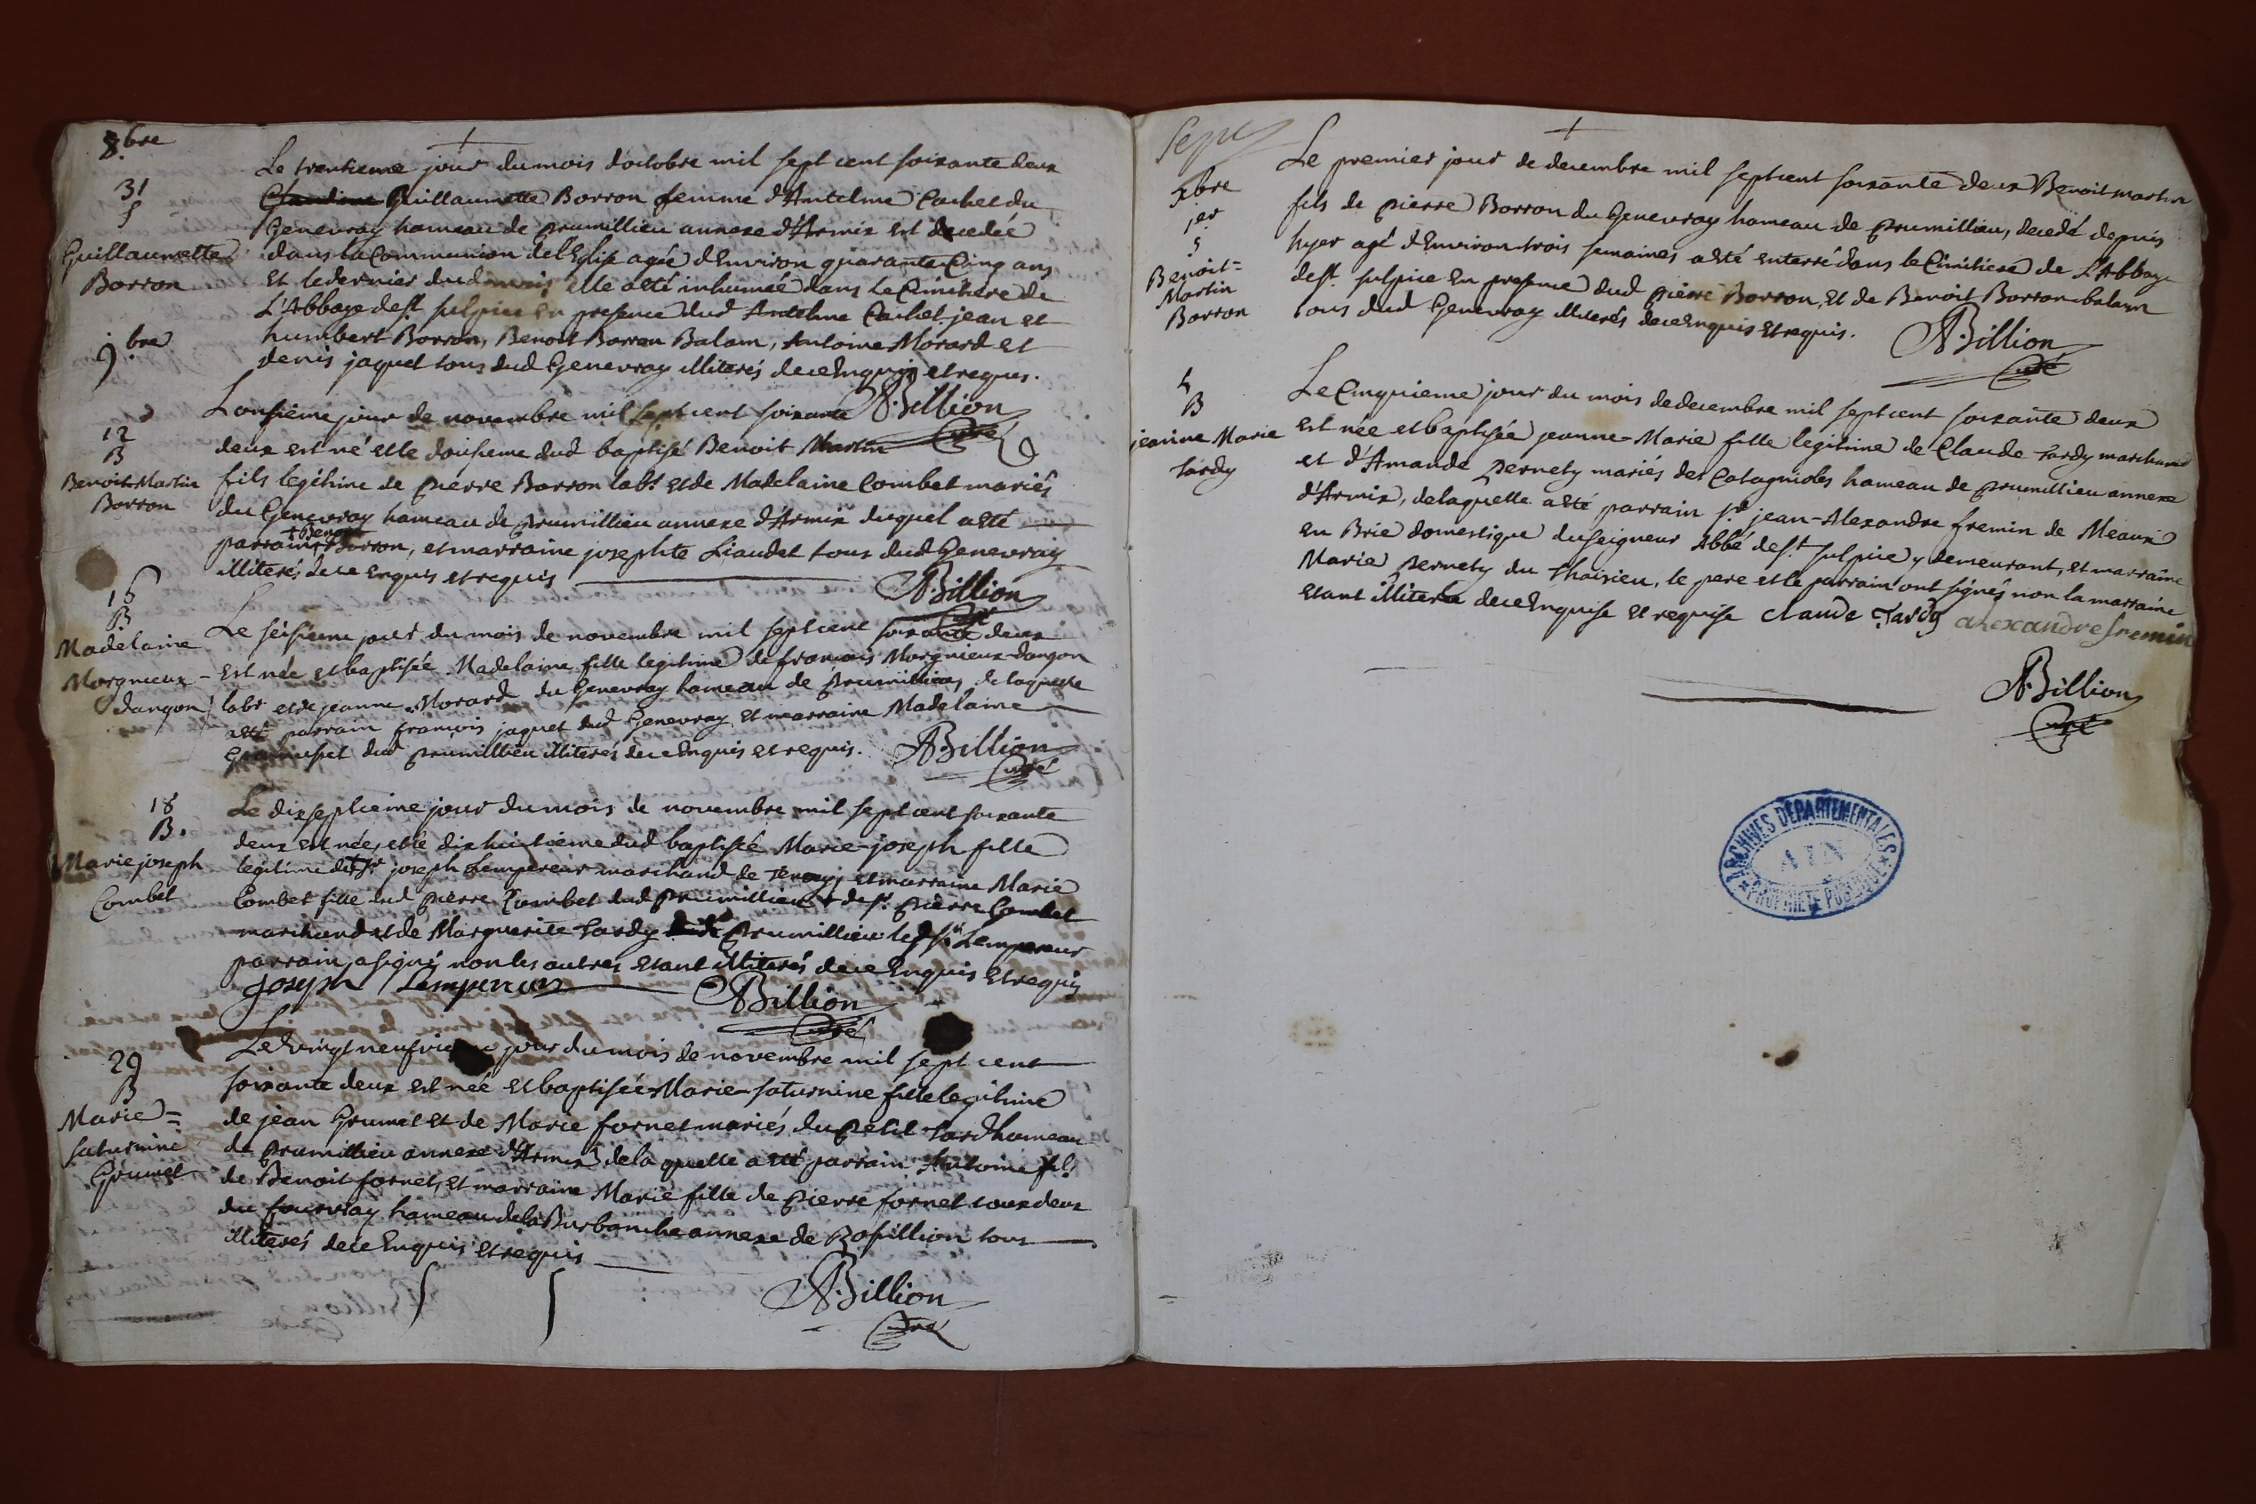 8.bre
Le trentieme jour du mois d'octobre mil sept cent soixante deux
31
S
Guillaumette
Borron
Claudine Guillaumette Borron femme d'Antelme Cachet du
Genevray hameau de prumillieu annexe d'Armix est decedée
dans la Communion de l'Eglise agée d'Environ quarante Cinq ans
et le dernier dud mois elle a eté inhumée dans le Cimitiere de
L'Abbaye de st sulpice en presence dud Antelme Cachet, jean et
humbert Borron, Benoit Borron Balam, Antoine Morard et
denis jaquet tous dud Genevray illiterés de ce Enquis et requis.
ABillion
Curé
9.bre
12
B
Benoit-Martin
Borron
L'onsieme jour de novembre mil sept cent soixante
deux est né et le dousieme dud baptisé Benoit Martin
fils legitime de pierre Borron labr. et de Madelaine Combet mariés
du Genevray hameau de prumillieu annexe d'Armix duquel a eté
parrain + Benoit Borron, et marraine josephte Liaudet tous dud Genevray
illiterés de ce Enquis et requis
ABillion
Curé
16
B
Madelaine
Morgnieux
dangon
Le seisieme jour du mois de novembre mil sept cent soixante deux
est née et baptisée Madelaine fille legitime de francois Morgnieux-dangon
labr et de jeanne Morard du Genevray hameau de prumillieu, de laquelle
a eté parrain françois jaquet dud Genevray et marraine Madelaine
dud prumillieu illiterés de ce Enquis et requis.
ABillion
Curé
18
B.
Marie joseph
Combet
Le dixseptieme jour du mois de novembre mil sept cent soixante
deux est née, et le dixhuitieme dud baptisée Marie-joseph fille
legitime de + sr joseph Lempereur marchand de Tenay, et marraine Marie
Combet fille dud pierre Combet dud prumillieu + de sr. pierre Combet
marchand et de Marguerite Tardy prumillieu led sr. Lempereur
parrain a signé, non les autres etant illiterés de ce Enquis et requis
Joseph Lempereur
ABillion
Curé
29
B
Marie=
saturnine
Grumet
Le vingt neufvieme jour du mois de novembre mil sept cent
soixante deux est née et baptisée Marie-saturnine fille legitime
de jean Grumet et de Marie fornet mariés du petit Tard hameau
de prumillieu annexe d'Armix de la quelle a eté parrain Antoine fils
de Benoit fornet, et marraine Marie fille de pierre fornet tous deux
du fourvray hameau de la Burbanche annexe de Rossillion tous
illiterés de ce Enquis et requis
ABillion
Curé
Xbre
1er
S
Benoit=
Martin
Borron
Le premier jour de decembre mil sept cent soixante deux Benoit martin
fils de pierre Borron du Genevray hameau de prumillieu, decedé depuis
hyer agé d'Environ trois semaines a eté enterré dans le Cimitiere de L'Abbaye
de st. sulpice En presence dud pierre Borron, et de Benoit Borron balam
tous dud Genevray illiterés de ce Enquis et requis.
ABillion
Curé
5
B
jeanne Marie
tardy
Le Cinquieme jour du mois de decembre mil sept cent soixante deux
est née et baptisée jeanne-Marie fille legitime de Claude tardy marchand
et d'Amande Bernety mariés des Catagnioles hameau de prumillieu annexe
d'Armix, de laquelle a eté parrain sr. jean-Alexandre fremin de Meaux
en Brie domestique du seigneur Abbé de st. sulpice y demeurant, et marraine
Marie Bernety du Thaisieu, le pere et le parrain ont signés non la marraine
etant illiterée de ce Enquise et requise Claude Tardy alexandre fremin
ABillion
Curé
ARCHIVES DEPARTEMENTALES
AIN
PROPRIETE PUBLIQUE